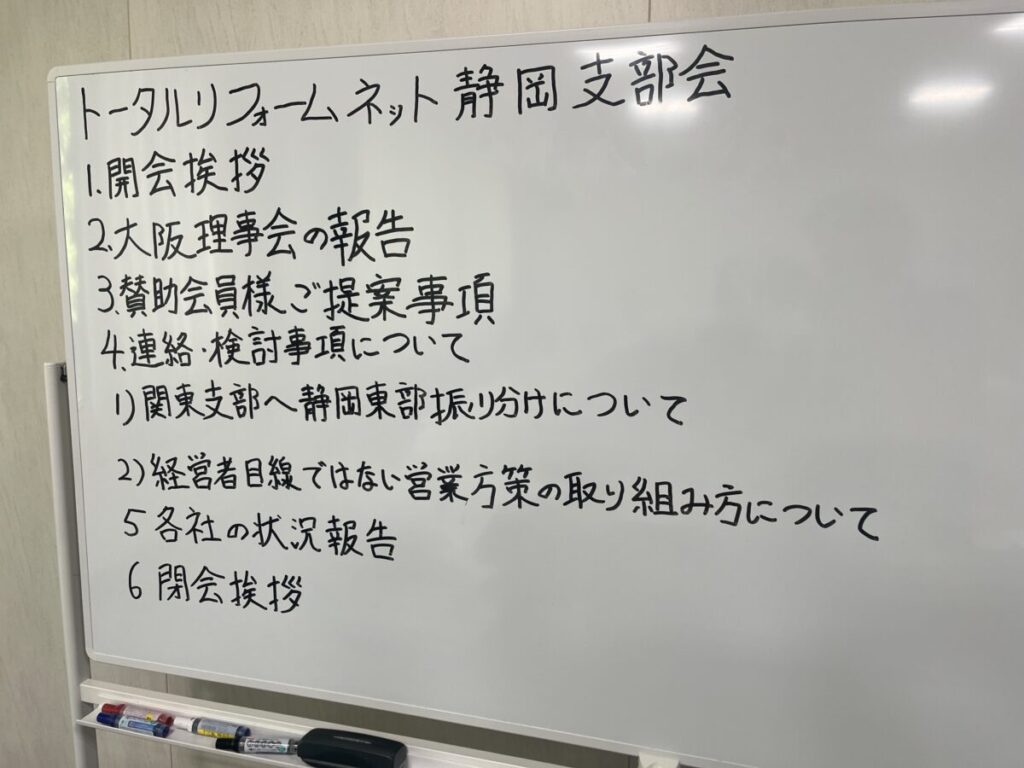 トータルリフォームネット静岡支部会
1.開会挨拶
2.大阪理事会の報告
3.賛助会員様ご提案事項
4.連絡・検討事項について
1)関東支部へ静岡東部振り分けについて
2)経営者目線ではない営業方策の取り組み方について
5 各社の状況報告
6 閉会挨拶